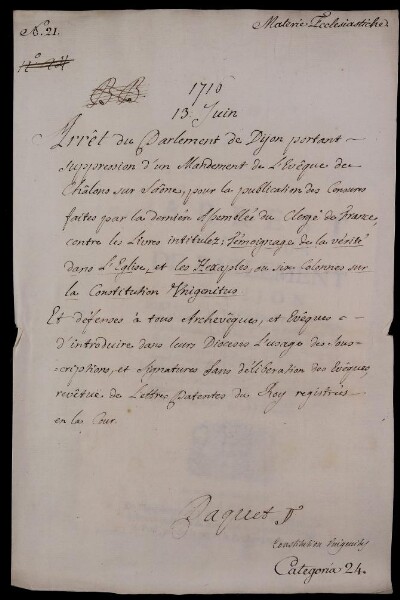 N.° 21.
Materie Ecclesiastiche
1716
13 Juin
Arrêt du Parlement de Dijon portant
suppression d'un Mandement de L'Evêque de
Châlons sur Saône, pour la publication des Censures
faites par la dernière Assemblée du Clergé de France,
contre les Livres intitulez; Témoignage de la vérité
dans L'Eglise, et les Hexaples, ou six Colonnes sur
la Constitution Unigenitus.
Et défenses à tous Archevêques, et Evêques
d'introduire dans leurs Dioceses L'usage des sous-
-criptions, et signatures sans déliberation des Evêques,
revêtue de Lettres Patentes du Roy registrées
en la Cour.
Paquet
Constitution Unigenitus
Categoria 24.